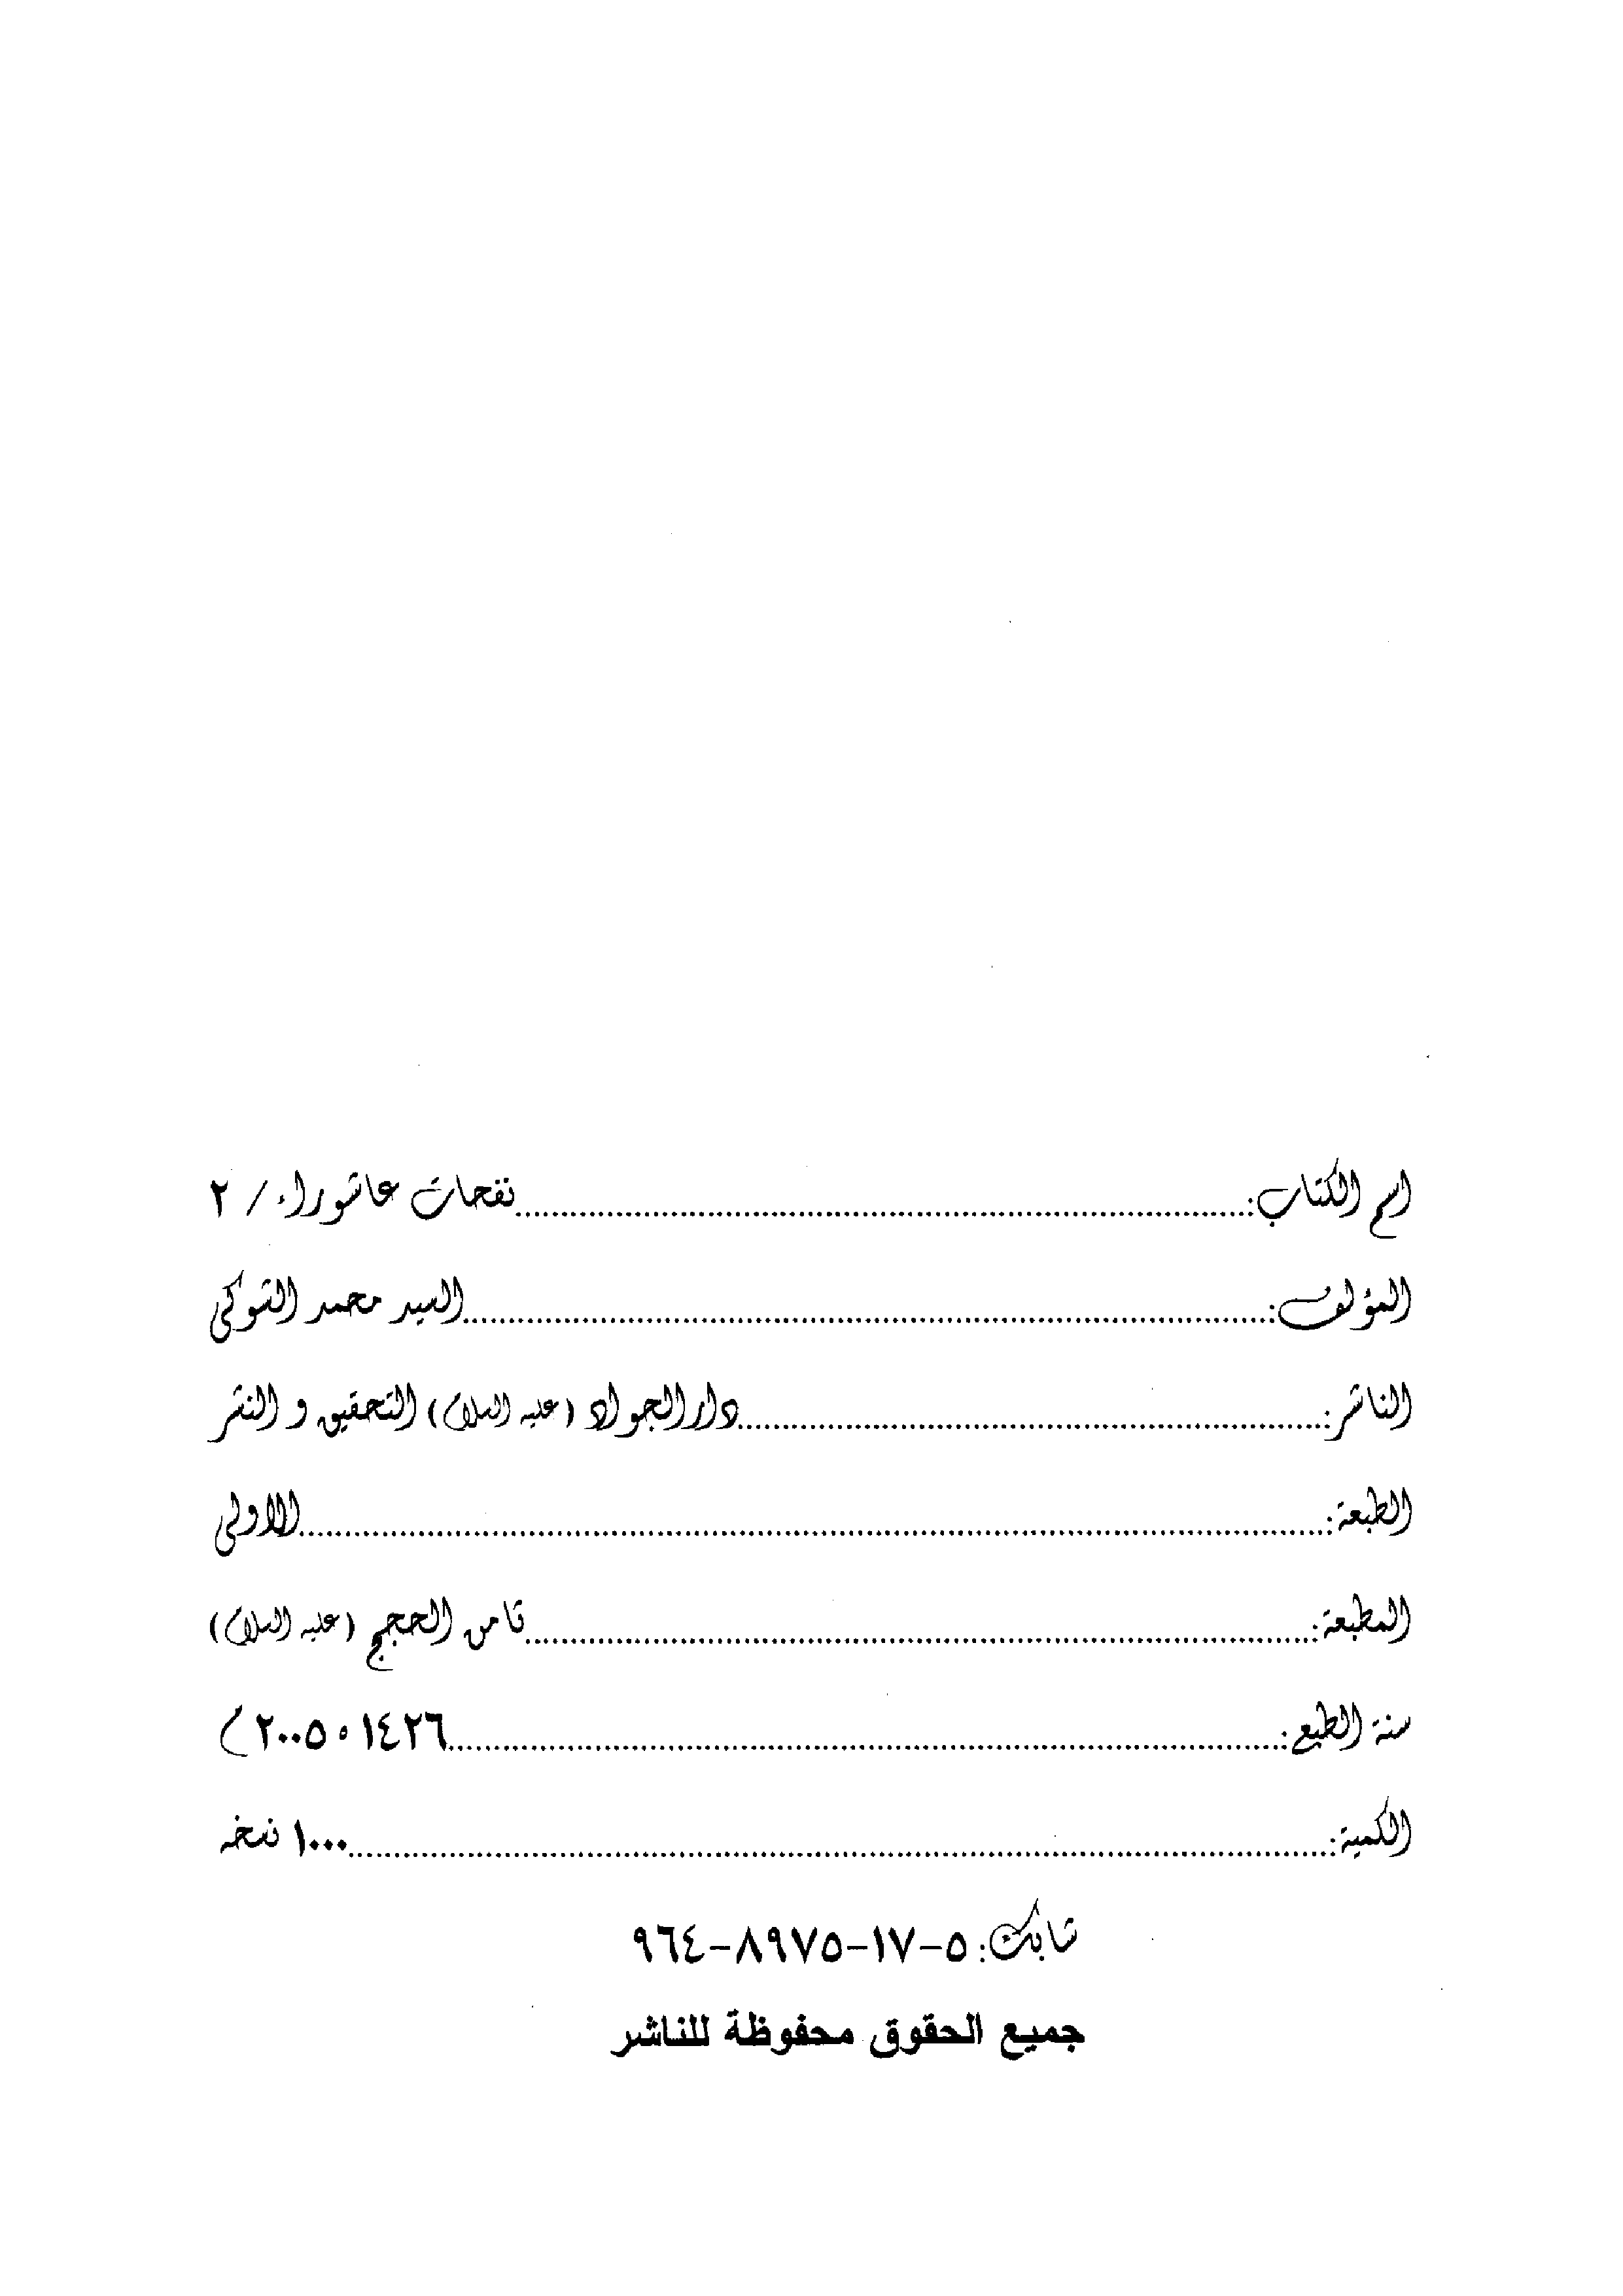 اسم الكتاب:........نفحات عاشوراء / ٢
المؤلف:........السيد محمد الشوكي
الناشر:........دار الجواد (عليه السلام) التحقيق و النشر
الطبعة:........الاولى
المطبعة:........ثامن الحجج (عليه السلام)
سنة الطبع:........١٤٢٦ ه ٢٠٠٥ م
الكمية:........١٠٠٠ نسخه
شابك: ٥-١٧-٨٩٧٥-٩٦٤
جميع الحقوق محفوظة للناشر